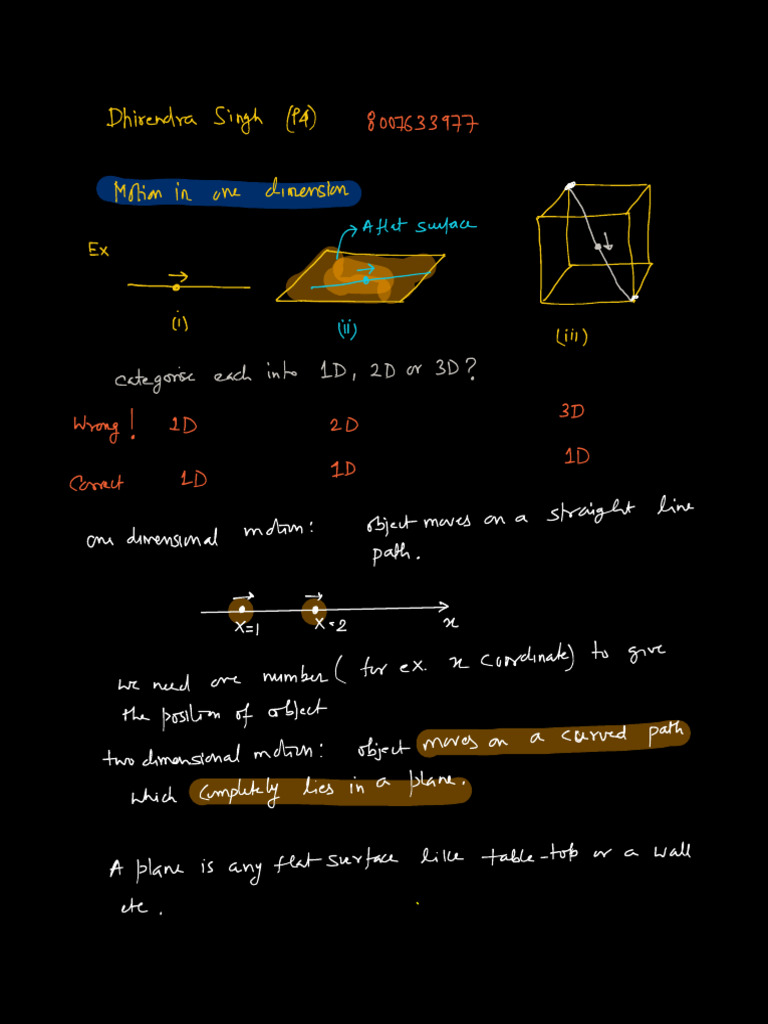 Dhirendra Singh (P4) 8007633977
Motion in one dimension
A flat surface
Ex
(i) (ii) (iii)
categorise each into 1D, 2D or 3D?
Wrong! 1D 2D 3D
Correct 1D 1D 1D
one dimensional motion: object moves on a straight line
path.
x=1 x=2 x
we need one number (for ex. x coordinate) to give
the position of object
two dimensional motion: object moves on a curved path
which completely lies in a plane.
A plane is any flat surface like table-top or a wall
etc.